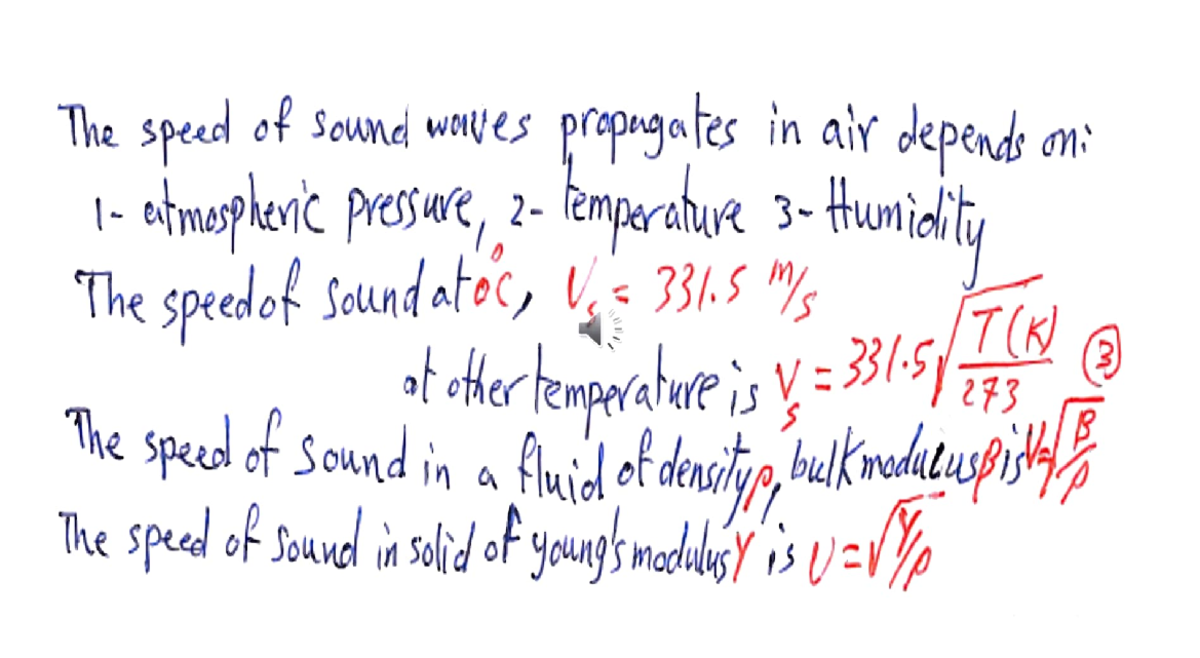 The speed of sound waves propagates in air depends on:
1- atmospheric pressure, 2- temperature 3- Humidity
The speed of sound at 0°C, Vs = 331.5 m/s
at other temperature is Vs = 331.5 √(T(K)/273) ③
The speed of sound in a fluid of density ρ, bulk modulus β is V=√(β/ρ)
The speed of sound in solid of young's modulus Y is υ = √(Y/ρ)